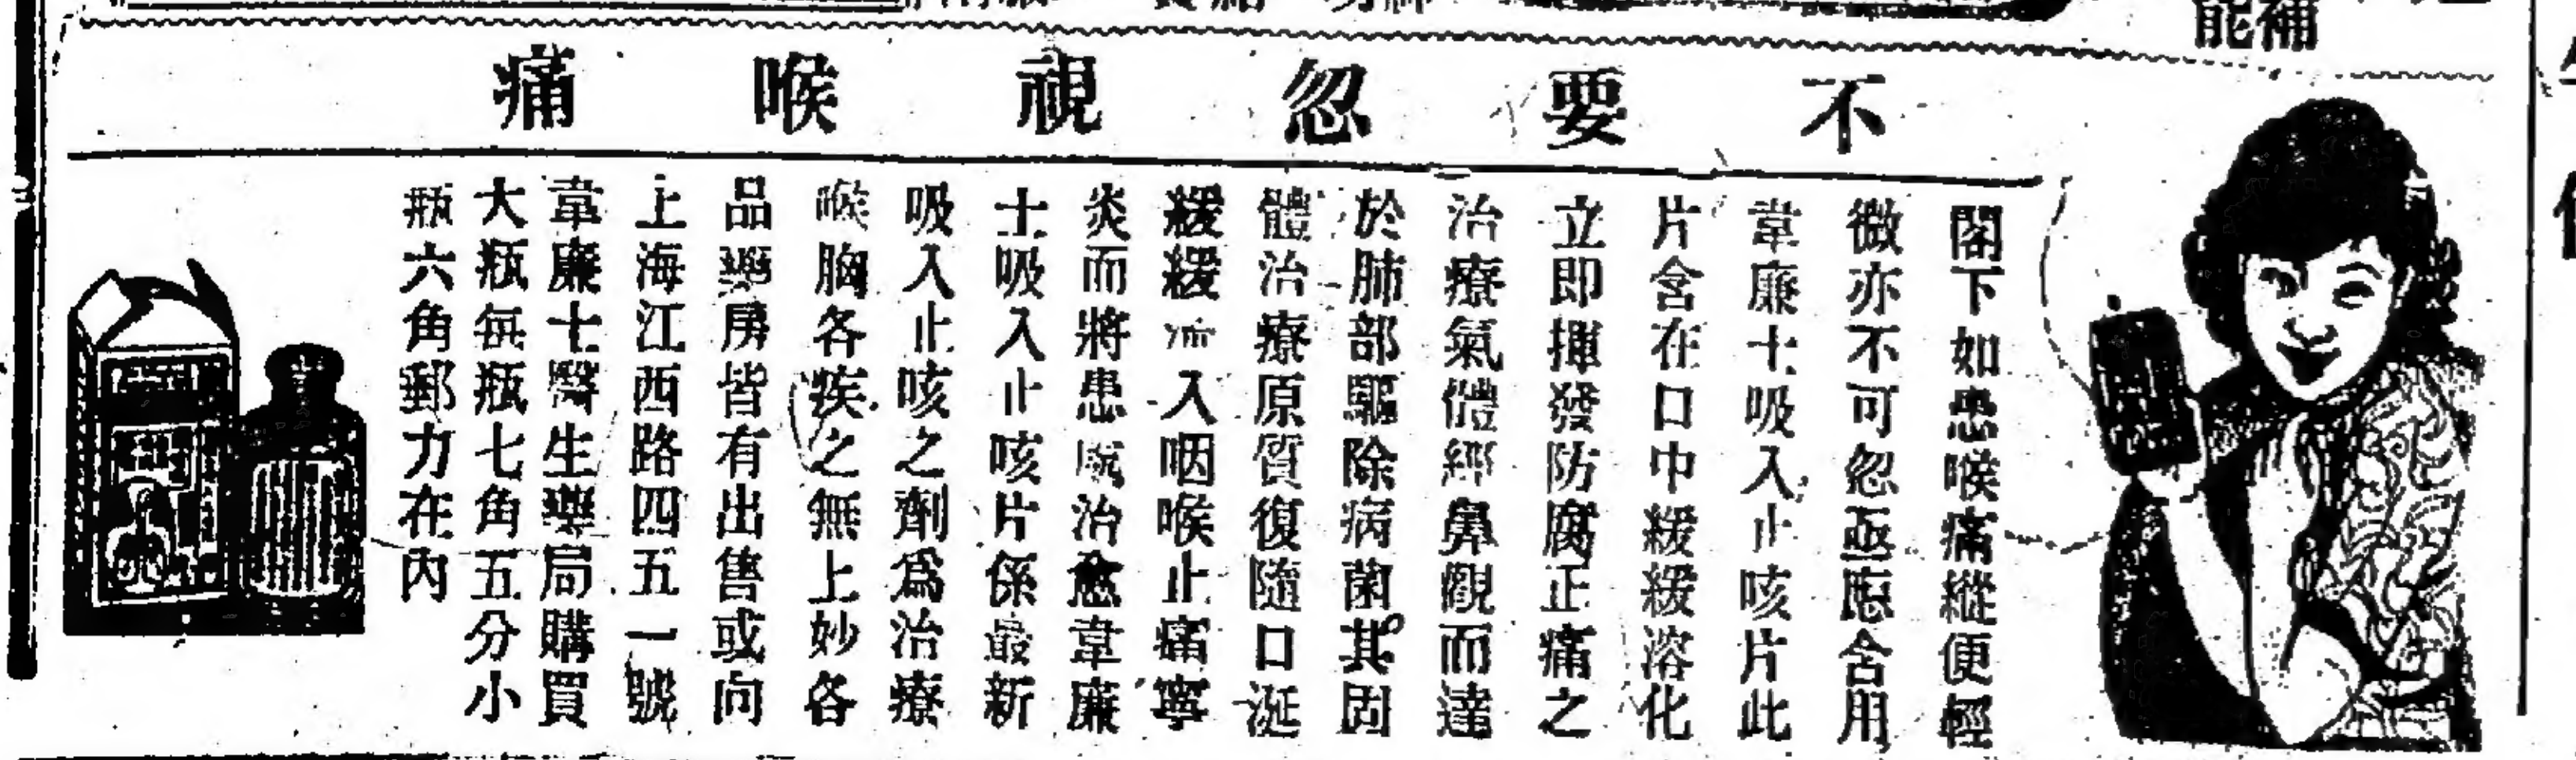 不要忽視喉痛
閣下如患喉痛縱便輕
微亦不可忽亟應含用
韋廉士吸入止咳片此
片含在口中緩緩溶化
立即揮發防腐止痛之
治療氣體經鼻觀而達
於肺部驅除病菌其固
體治療原質復隨口涎
緩緩流入咽喉止痛寧
炎而將患處治愈韋廉
士吸入止咳片係最新
吸入止咳之劑為治療
喉胸各疾之無上妙各
品藥房皆有出售或向
上海江西路四五一號
韋廉士醫生藥局購買
大瓶每瓶七角五分小
瓶六角郵力在內
補
能